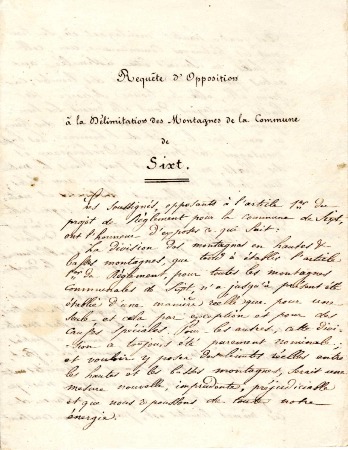 Requête d'Opposition
à la Délimitation des Montagnes de la Commune
de
Sixt.
Les soussignés, opposants à l'article 1er du
projet de Règlement pour la commune de Sixt,
ont l'honneur d'exposer ce qui suit:
La division des montagnes en hautes &
basses montagnes, que tend à établir l'article
1er du Règlement, pour toutes les montagnes
communales de Sixt, n'a jusqu'à présent été
établie d'une manière réelle que pour une
seule et cela par exception et pour des
causes spéciales. Pour les autres, cette divi-
sion a toujours été purement nominale;
et vouloir y poser des limites réelles entre
les hautes et les basses montagnes, serait une
mesure nouvelle, imprudente, préjudiciable
et que nous repoussons de toute notre
énergie.